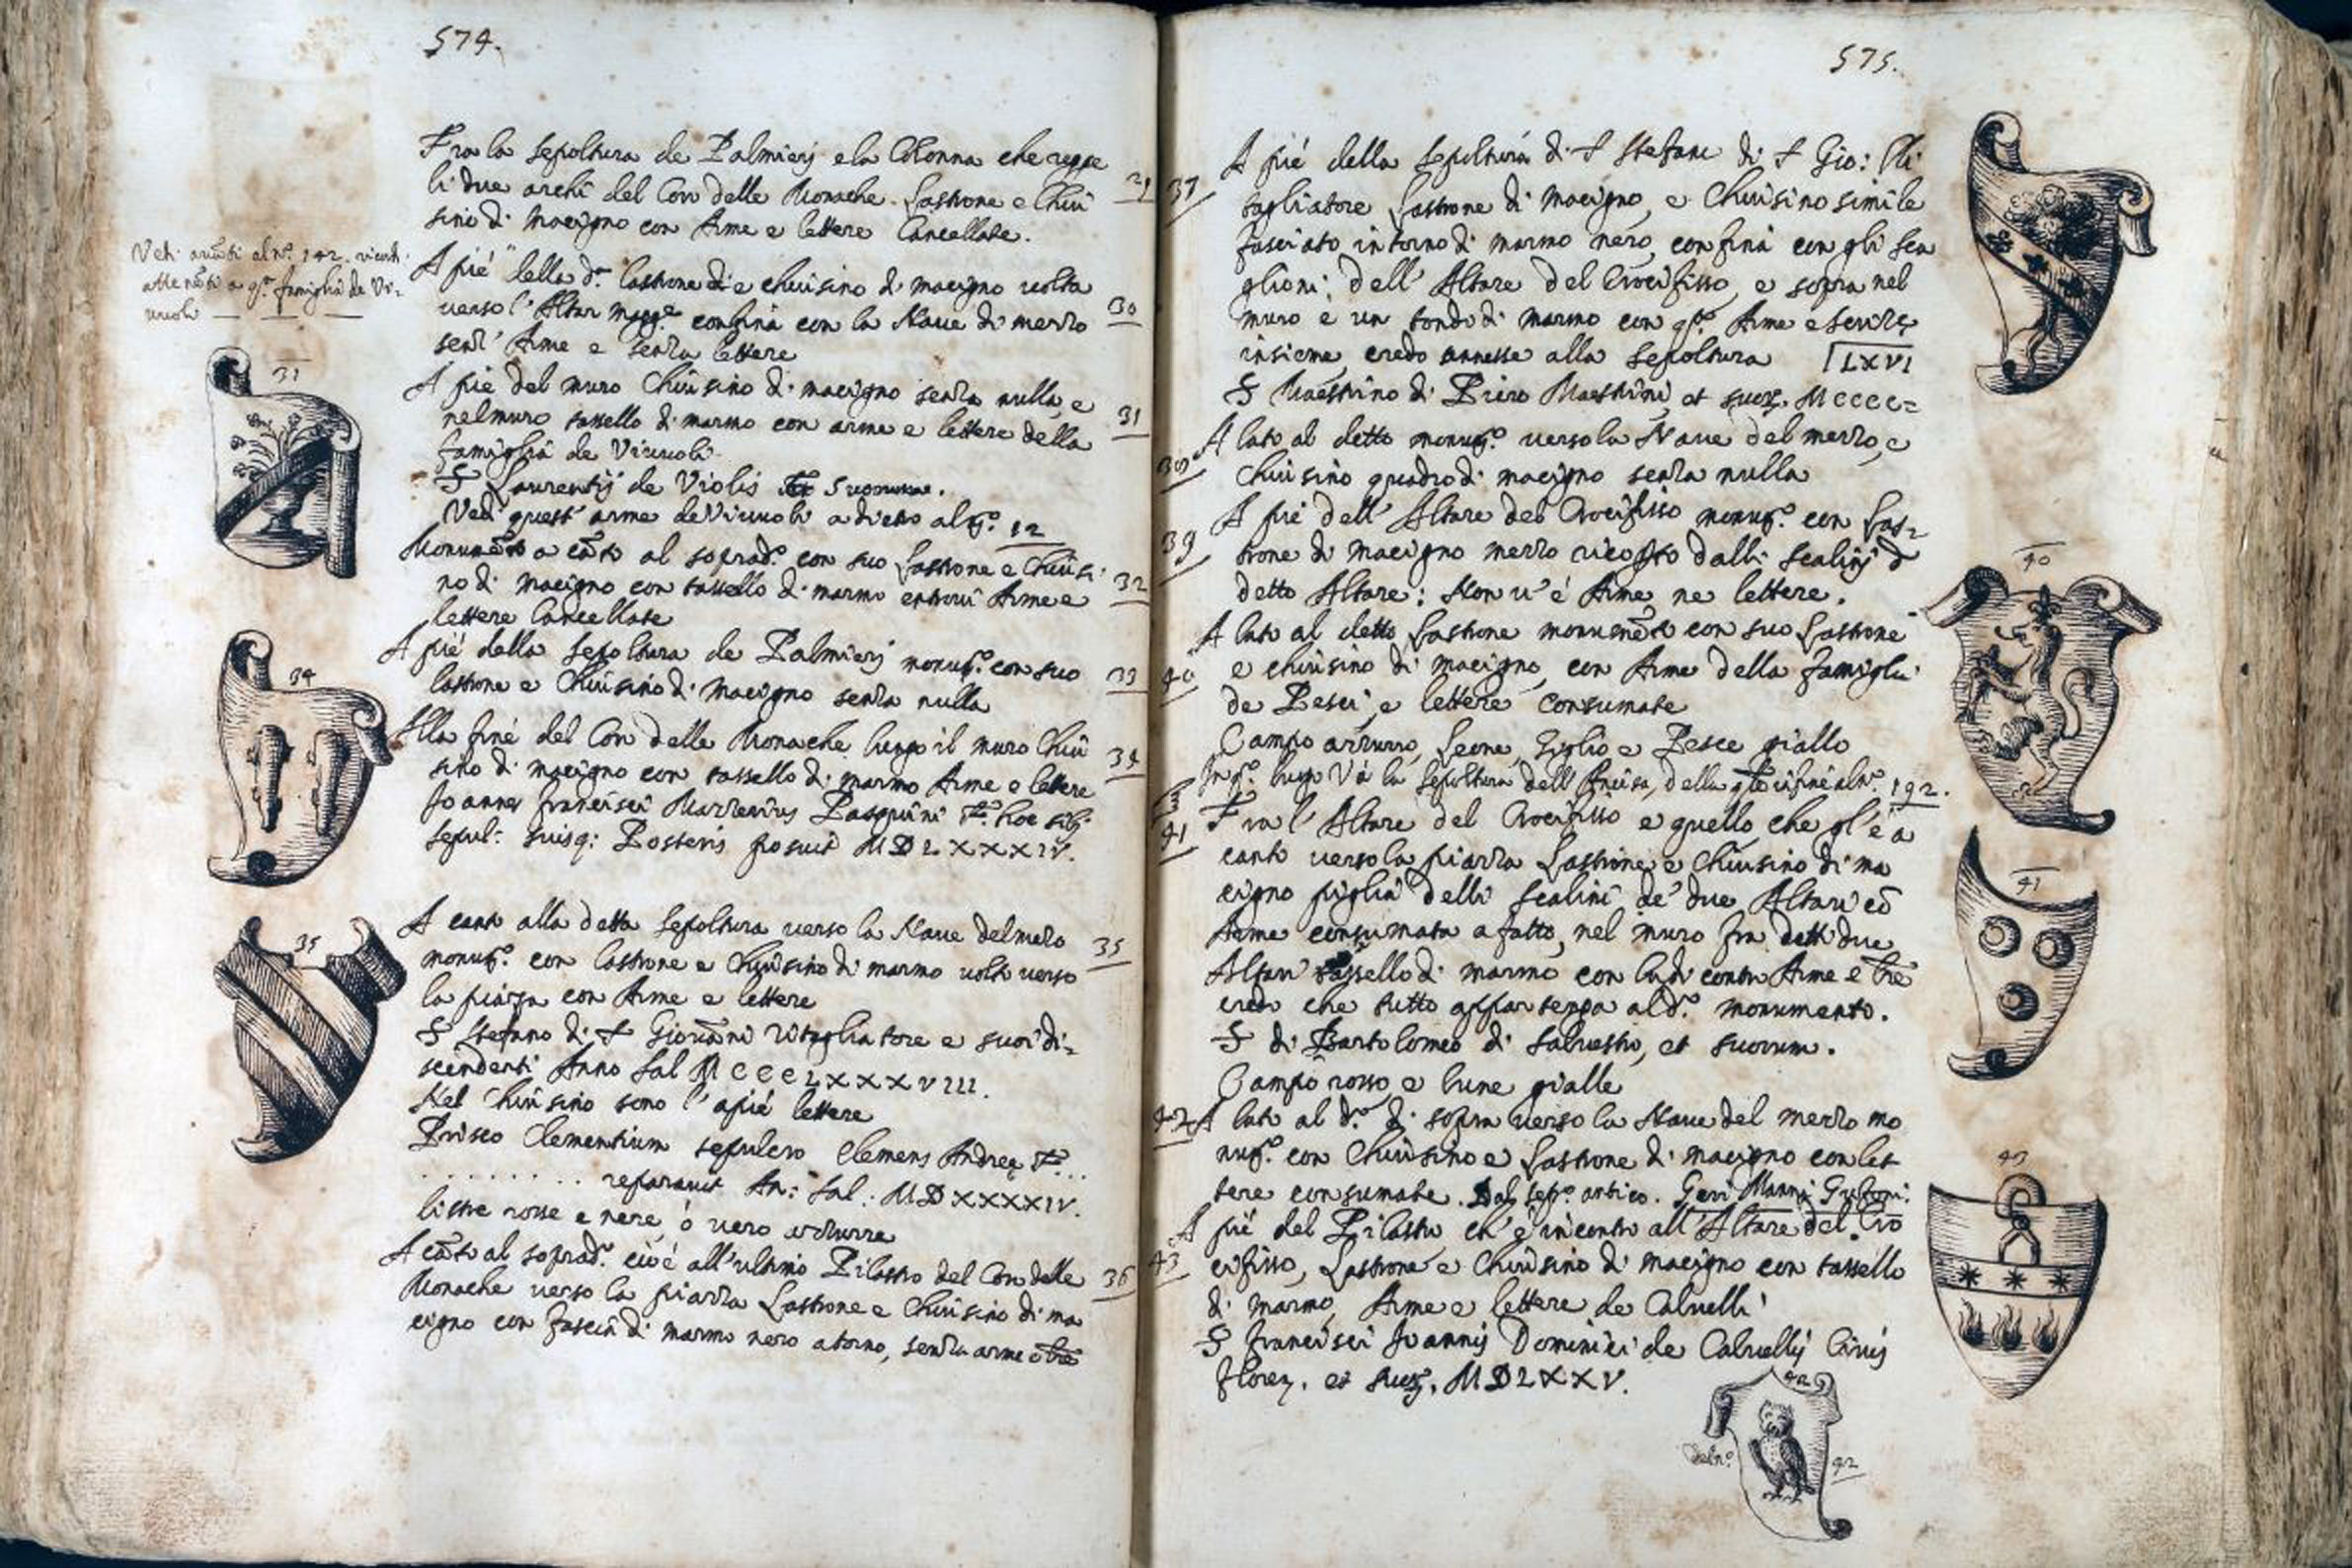 574.
Fra la sepoltura de Palmierj e la Colonna che regge
li due archi del Coro delle Monache. Lastrone e Chiu
sino di macigno con Arme e lettere Cancellate.
29
A pié della d.ª lastrone di e chiusino di macigno volta
verso l'Altar magg.e confina con la Nave di mezzo
senz' Arme e senza lettere
30
Vedi al n.º 142.
attenẽti a q.ª famiglia de Vi-
uuoli
A pié del muro Chiusino di macigno senza nulla, e
nel muro tassello di marmo con arme e lettere della
famiglia de Viuuoli
31
S Laurentij de Violis Et Suorum.
Vedi quest' arme de Viuuoli adietro al n.º 12
Monumẽto a cãto al soprad.º con suo Lastrone e Chiusi
no di macigno con tassello di marmo entrovi Arme e
lettere Cancellate
32
A pié della sepoltura de Palmierj monum.º con suo
lastrone e Chiusino di macigno senza nulla
33
Alla fine del Coro delle Monache lungo il muro Chiu
sino di macigno con tassello di marmo Arme e lettere
34
Joannes Francisci Pasquini F. hoc sibi
sepul: suisq: Posteris posuit MDLXXXIV.
A canto alla detta sepoltura verso la Nave del mezo
monum.º con lastrone e Chiusino di marmo volti verso
la piazza con Arme e lettere
35
S Stefano di S Giovãni Ritagliatore e suoi di-
scendenti Anno Sal MCCCLXXXVIII.
Nel Chiusino sono l'apié lettere
Prisco Clementium sepulcro Clemens Andreę F. . .
. . . . . . . . reparauit An: Sal: MDXXXXIV.
liste rosse e nere, ò vero azzurre
A cãto al soprad.º cioé all'ultimo Pilastro del Coro delle
Monache verso la piazza Lastrone e Chiusino di ma
cigno con fascia di marmo nero atorno, senza arme o lre
36
31
34
35
575.
37
A pié della sepoltura di S Stefano di S Gio: Ri
tagliatore Lastrone di macigno, e Chiusino simile
fasciato intorno di marmo nero, confina con gli sca
glioni, dell' Altare del Crocifisso, e sopra nel
muro è un tondo di marmo con q.ª Arme e scritte
insieme credo annesse alla sepoltura LXVI
S Maestrino di Piero Maestrini et suor. MCCCC=
38
A lato al detto monum.º verso la Nave del mezzo, e
Chiusino quadro di macigno senza nulla
39
A pié dell' Altare del Crocifisso monum.º con Las-
trone di macigno mezzo ricoperto dalli scalinj d
detto Altare: Non v'é Arme, ne lettere.
40
A lato al detto Lastrone monumẽto con suo Lastrone
e chiusino di macigno, con Arme della famiglia
de Pesci, e lettere consumate
Campo azzurro, Leone, Giglio e Pesce giallo
In q.º luogo Và la sepoltura dell' al n.º 192.
41
Fra l'Altare del Crocifisso e quello che gl'é a
canto verso la piazza Lastrone e Chiusino di ma
cigno piglia delli scalini de' due Altari cõ
Arme consumata afatto, nel muro fra detti due
Altari tassello di marmo con Arme e lre
credo che tutto appartenga al d.º monumento.
S di Bartolomeo di Saluestro, et suorum.
Campo rosso e lune gialle
42
A lato al d.º di sopra verso la Nave del mezzo mo
num.º con Chiusino e Lastrone di macigno con let
tere consumate. Dal sep.º antico. Geri Manni
43
A pié del Pilastro ch' é incontro all'Altare del Cro
cifisso, Lastrone e Chiusino di macigno con tassello
di marmo, Arme e lettere de Caluelli
S Francisci Joannis Dominici de Caluellis Ciuis
Floren. et Suor. MDLXXV.
40
41
43
42
del n.º 42